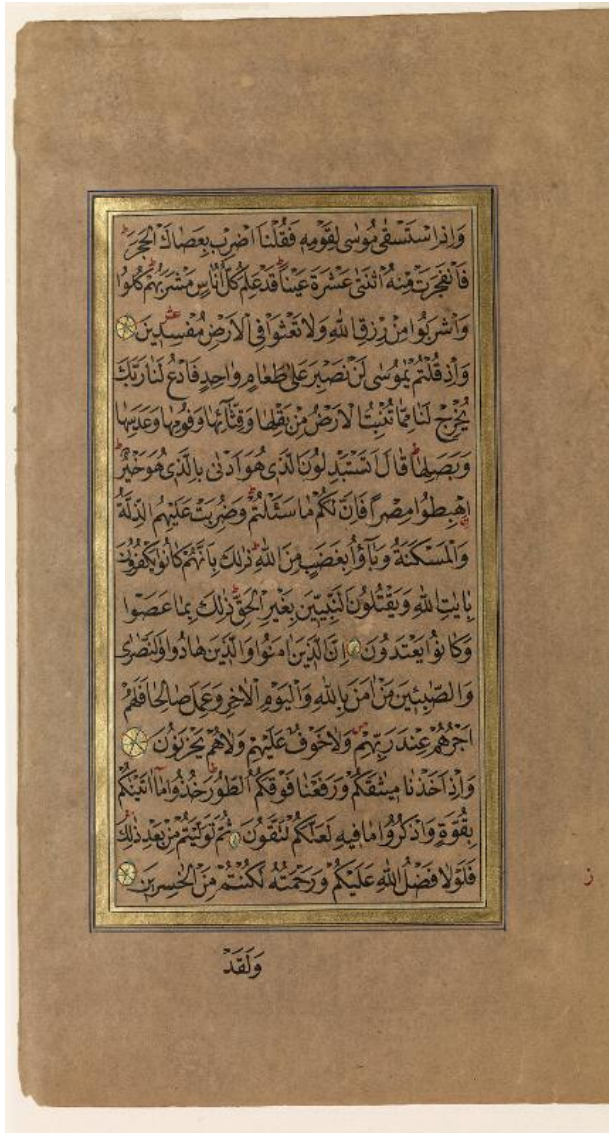 وَاِذِ اسْتَسْقٰى مُوسٰى لِقَوْمِهٖ فَقُلْنَا اضْرِبْ بِعَصَاكَ الْحَجَرَ
فَانْفَجَرَتْ مِنْهُ اثْنَتٰى عَشْرَةَ عَيْنًا قَدْ عَلِمَ كُلُّ اُنَاسٍ مَشْرَبَهُمْ كُلُوا
وَاشْرَبُوا مِنْ رِزْقِ اللّٰهِ وَلَا تَعْثَوْا فِى الْاَرْضِ مُفْسِدِينَ
وَاِذْ قُلْتُمْ يٰمُوسٰى لَنْ نَصْبِرَ عَلٰى طَعَامٍ وَاحِدٍ فَادْعُ لَنَا رَبَّكَ
يُخْرِجْ لَنَا مِمَّا تُنْبِتُ الْاَرْضُ مِنْ بَقْلِهَا وَقِثَّآئِهَا وَفُومِهَا وَعَدَسِهَا
وَبَصَلِهَا قَالَ اَتَسْتَبْدِلُونَ الَّذِى هُوَ اَدْنٰى بِالَّذِى هُوَ خَيْرٌ
اِهْبِطُوا مِصْرًا فَاِنَّ لَكُمْ مَا سَئَلْتُمْ وَضُرِبَتْ عَلَيْهِمُ الذِّلَّةُ
وَالْمَسْكَنَةُ وَبَآؤُا بِغَضَبٍ مِنَ اللّٰهِ ذٰلِكَ بِاَنَّهُمْ كَانُوا يَكْفُرُونَ
بِاٰيٰتِ اللّٰهِ وَيَقْتُلُونَ النَّبِيّٖنَ بِغَيْرِ الْحَقِّ ذٰلِكَ بِمَا عَصَوْا
وَكَانُوْا يَعْتَدُونَ اِنَّ الَّذِينَ اٰمَنُوا وَالَّذِينَ هَادُوا وَالنَّصٰرٰى
وَالصّٰبِئِينَ مَنْ اٰمَنَ بِاللّٰهِ وَالْيَوْمِ الْاٰخِرِ وَعَمِلَ صَالِحًا فَلَهُمْ
اَجْرُهُمْ عِنْدَ رَبِّهِمْ وَلَا خَوْفٌ عَلَيْهِمْ وَلَا هُمْ يَحْزَنُونَ
وَاِذْ اَخَذْنَا مِيثٰقَكُمْ وَرَفَعْنَا فَوْقَكُمُ الطُّورَ خُذُوا مَا اٰتَيْنٰكُمْ
بِقُوَّةٍ وَاذْكُرُوا مَا فِيهِ لَعَلَّكُمْ تَتَّقُونَ ثُمَّ تَوَلَّيْتُمْ مِنْ بَعْدِ ذٰلِكَ
فَلَوْلَا فَضْلُ اللّٰهِ عَلَيْكُمْ وَرَحْمَتُهُ لَكُنْتُمْ مِنَ الْخٰسِرِينَ
وَلَقَدْ